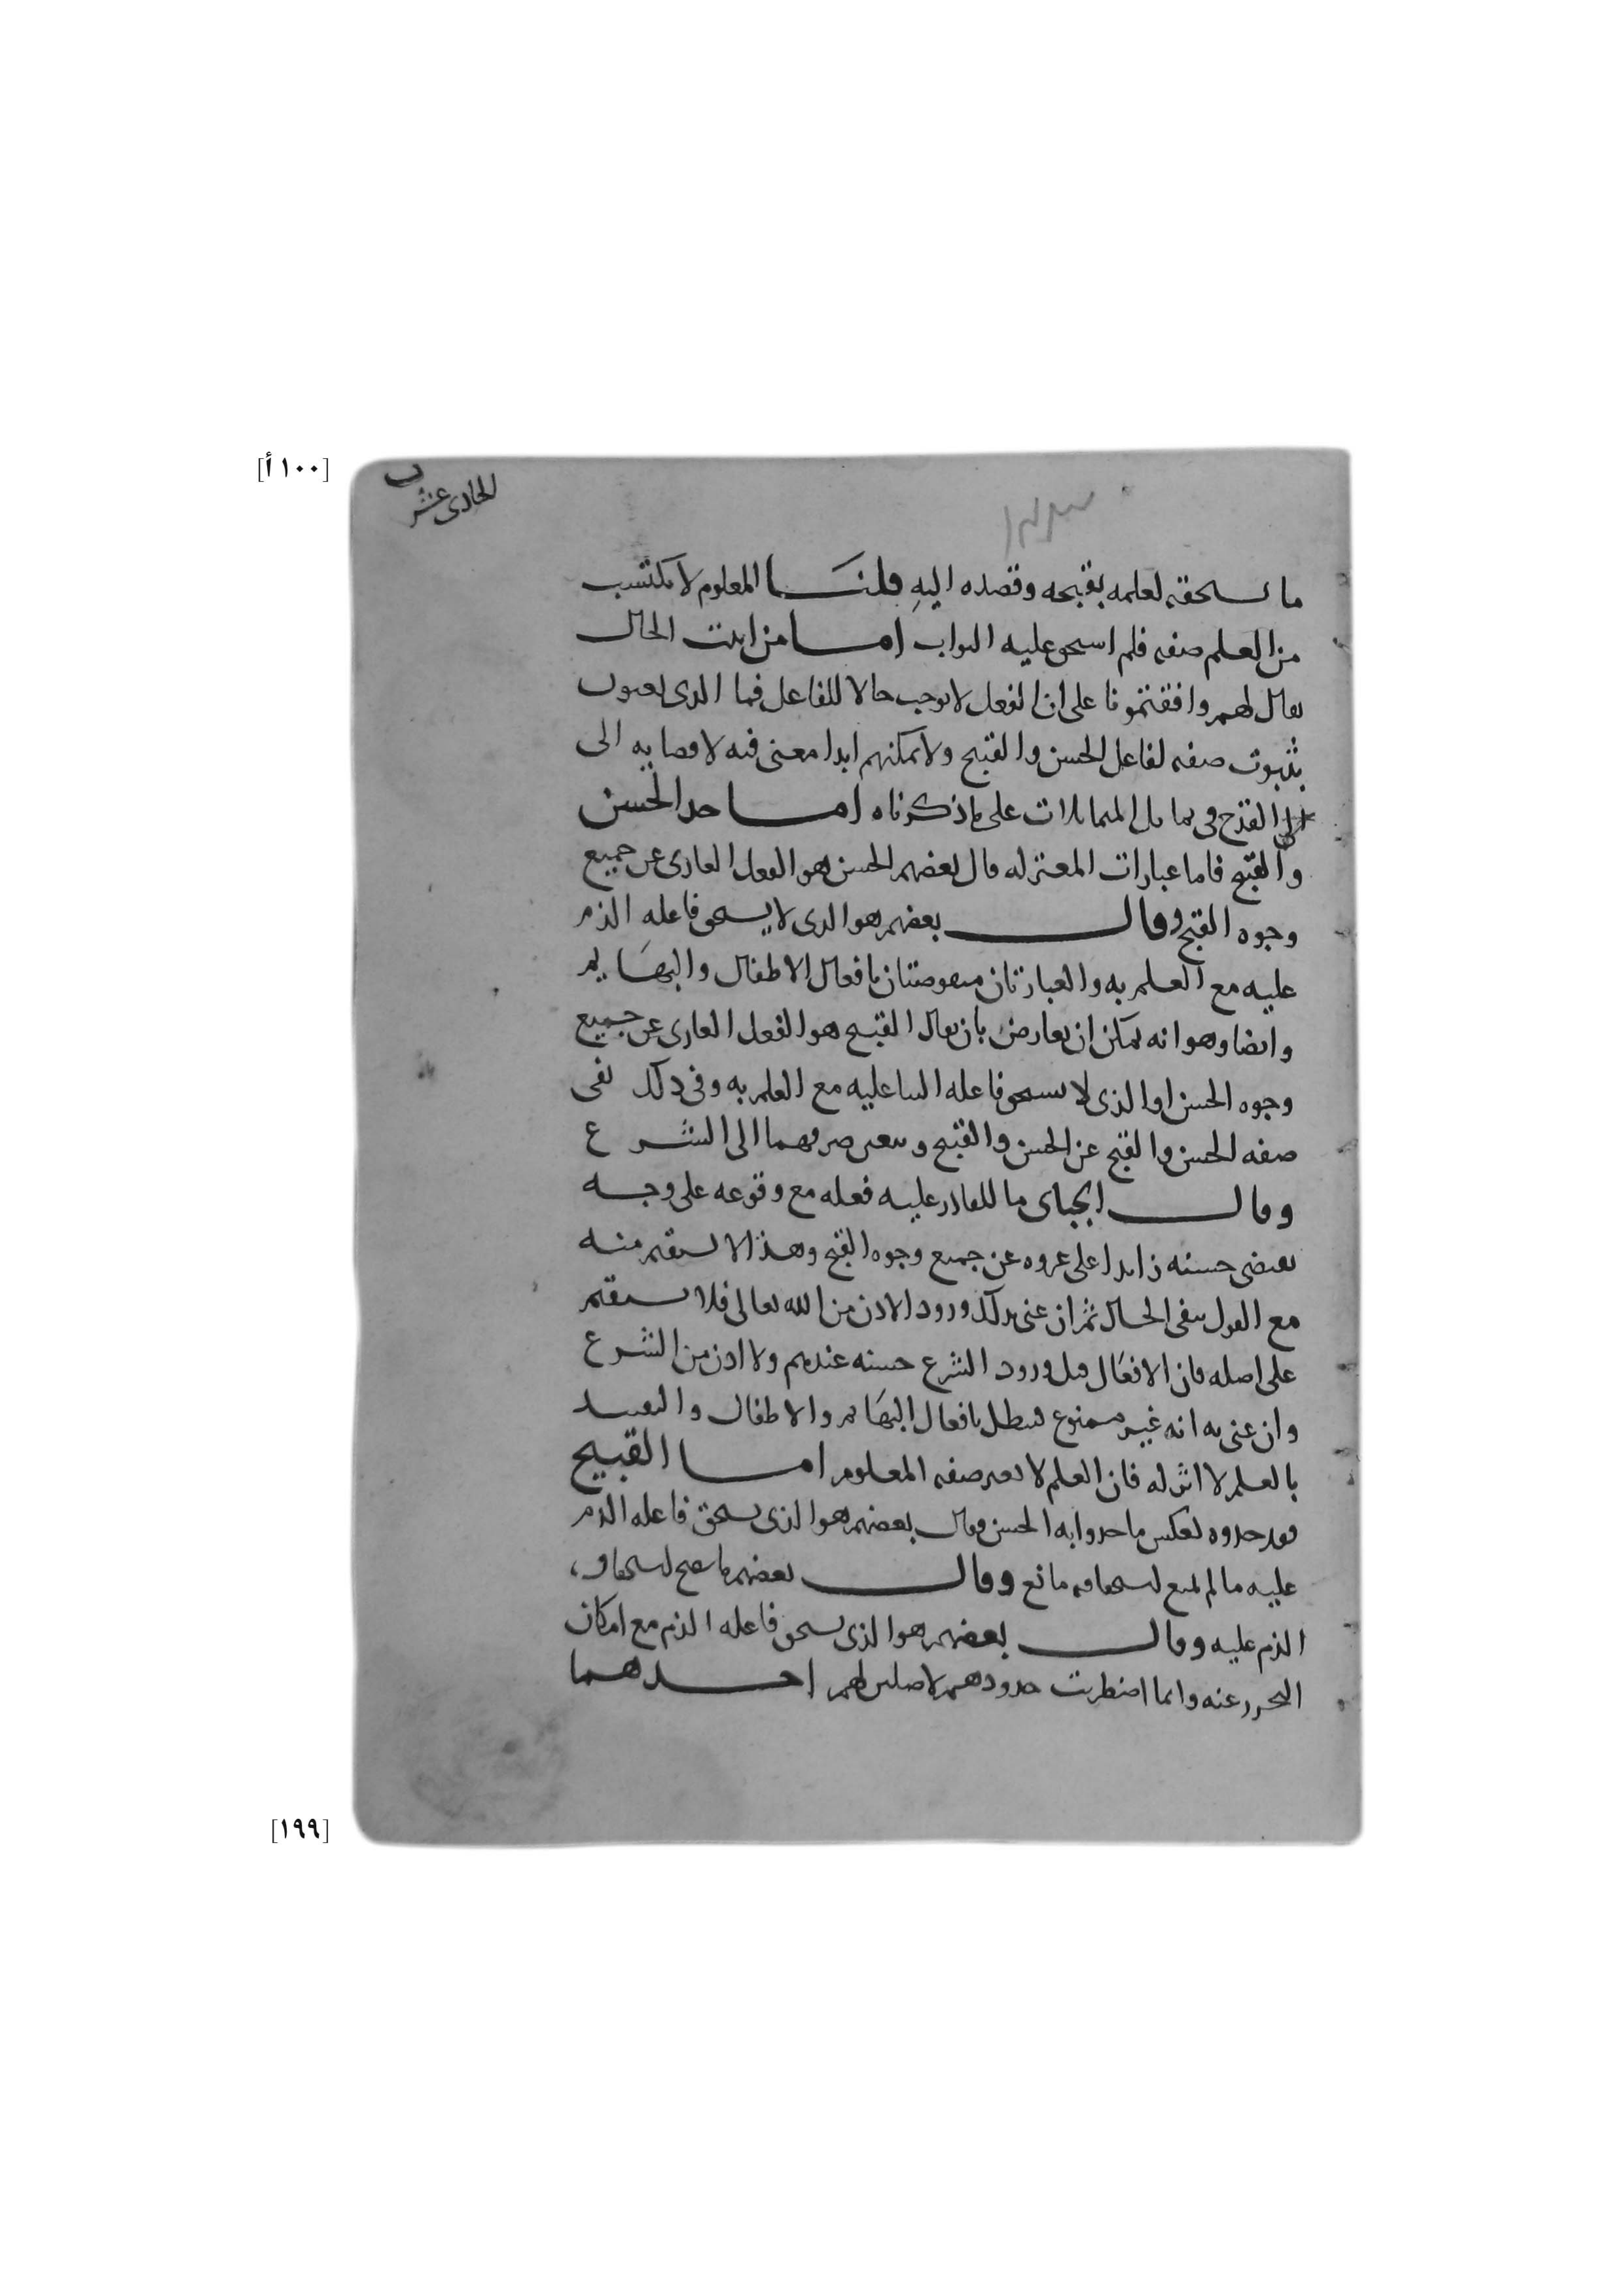 [١٠٠ أ]
الحادى عشر
ما يستحقه لعلمه بقبحه وقصده اليه قلنا المعلوم لا يكتسب
من العلم صفه فلم استحق عليه الثواب اما من اثبت الحال
يقال لهم وافقتمونا على ان الفعل لا يوجب حالا للفاعل فما الذى يعنون
بثبوت صفه لفاعل الحسن والقبيح ولا يمكنهم ابدا معنى فيه لافضايه الى
الى القدح فى تماثل المتماثلات على ما ذكرناه اما حد الحسن
والقبح فاما عبارات المعتزله قال بعضهم الحسن هو الفعل العارى عن جميع
وجوه القبح وقال بعضهم هو الذى لا يستحق فاعله الذم
عليه مع العلم به والعبارتان منقوضتان بافعال الاطفال والبهايم
وايضا وهو انه يمكن ان يعارض بان يقال القبيح هو الفعل العارى عن جميع
وجوه الحسن او الذى لا يستحق فاعله الثنا عليه مع العلم به وفى ذلك نفى
صفه الحسن والقبح عن الحسن والقبيح وصرفهما الى الشرع
وقال الجباى ما للقادر عليه فعله مع وقوعه على وجه
يقتضى حسنه زايدا على عروه عن جميع وجوه القبح وهذا لا يستقيم منه
مع القول بنفى الحال ثم ان عنى بذلك ورود الاذن من الله تعالى فلا يستقيم
على اصله فان الافعال قبل ورود الشرع حسنه عندهم ولا اذن من الشرع
وان عنى به انه غير ممنوع فيبطل بافعال البهايم والاطفال والتقييد
بالعلم لا اثر له فان العلم لا يغير صفه المعلوم اما القبيح
فقد حدوه بعكس ما حدوا به الحسن وقال بعضهم هو الذى يستحق فاعله الذم
عليه ما لم يمنع استحقاقه مانع وقال بعضهم ما يصح استحقاق
الذم عليه وقال بعضهم هو الذى يستحق فاعله الذم مع امكان
التحرز عنه وانما اضطربت حدودهم لاصلين لهم احدهما
[١٩٩]